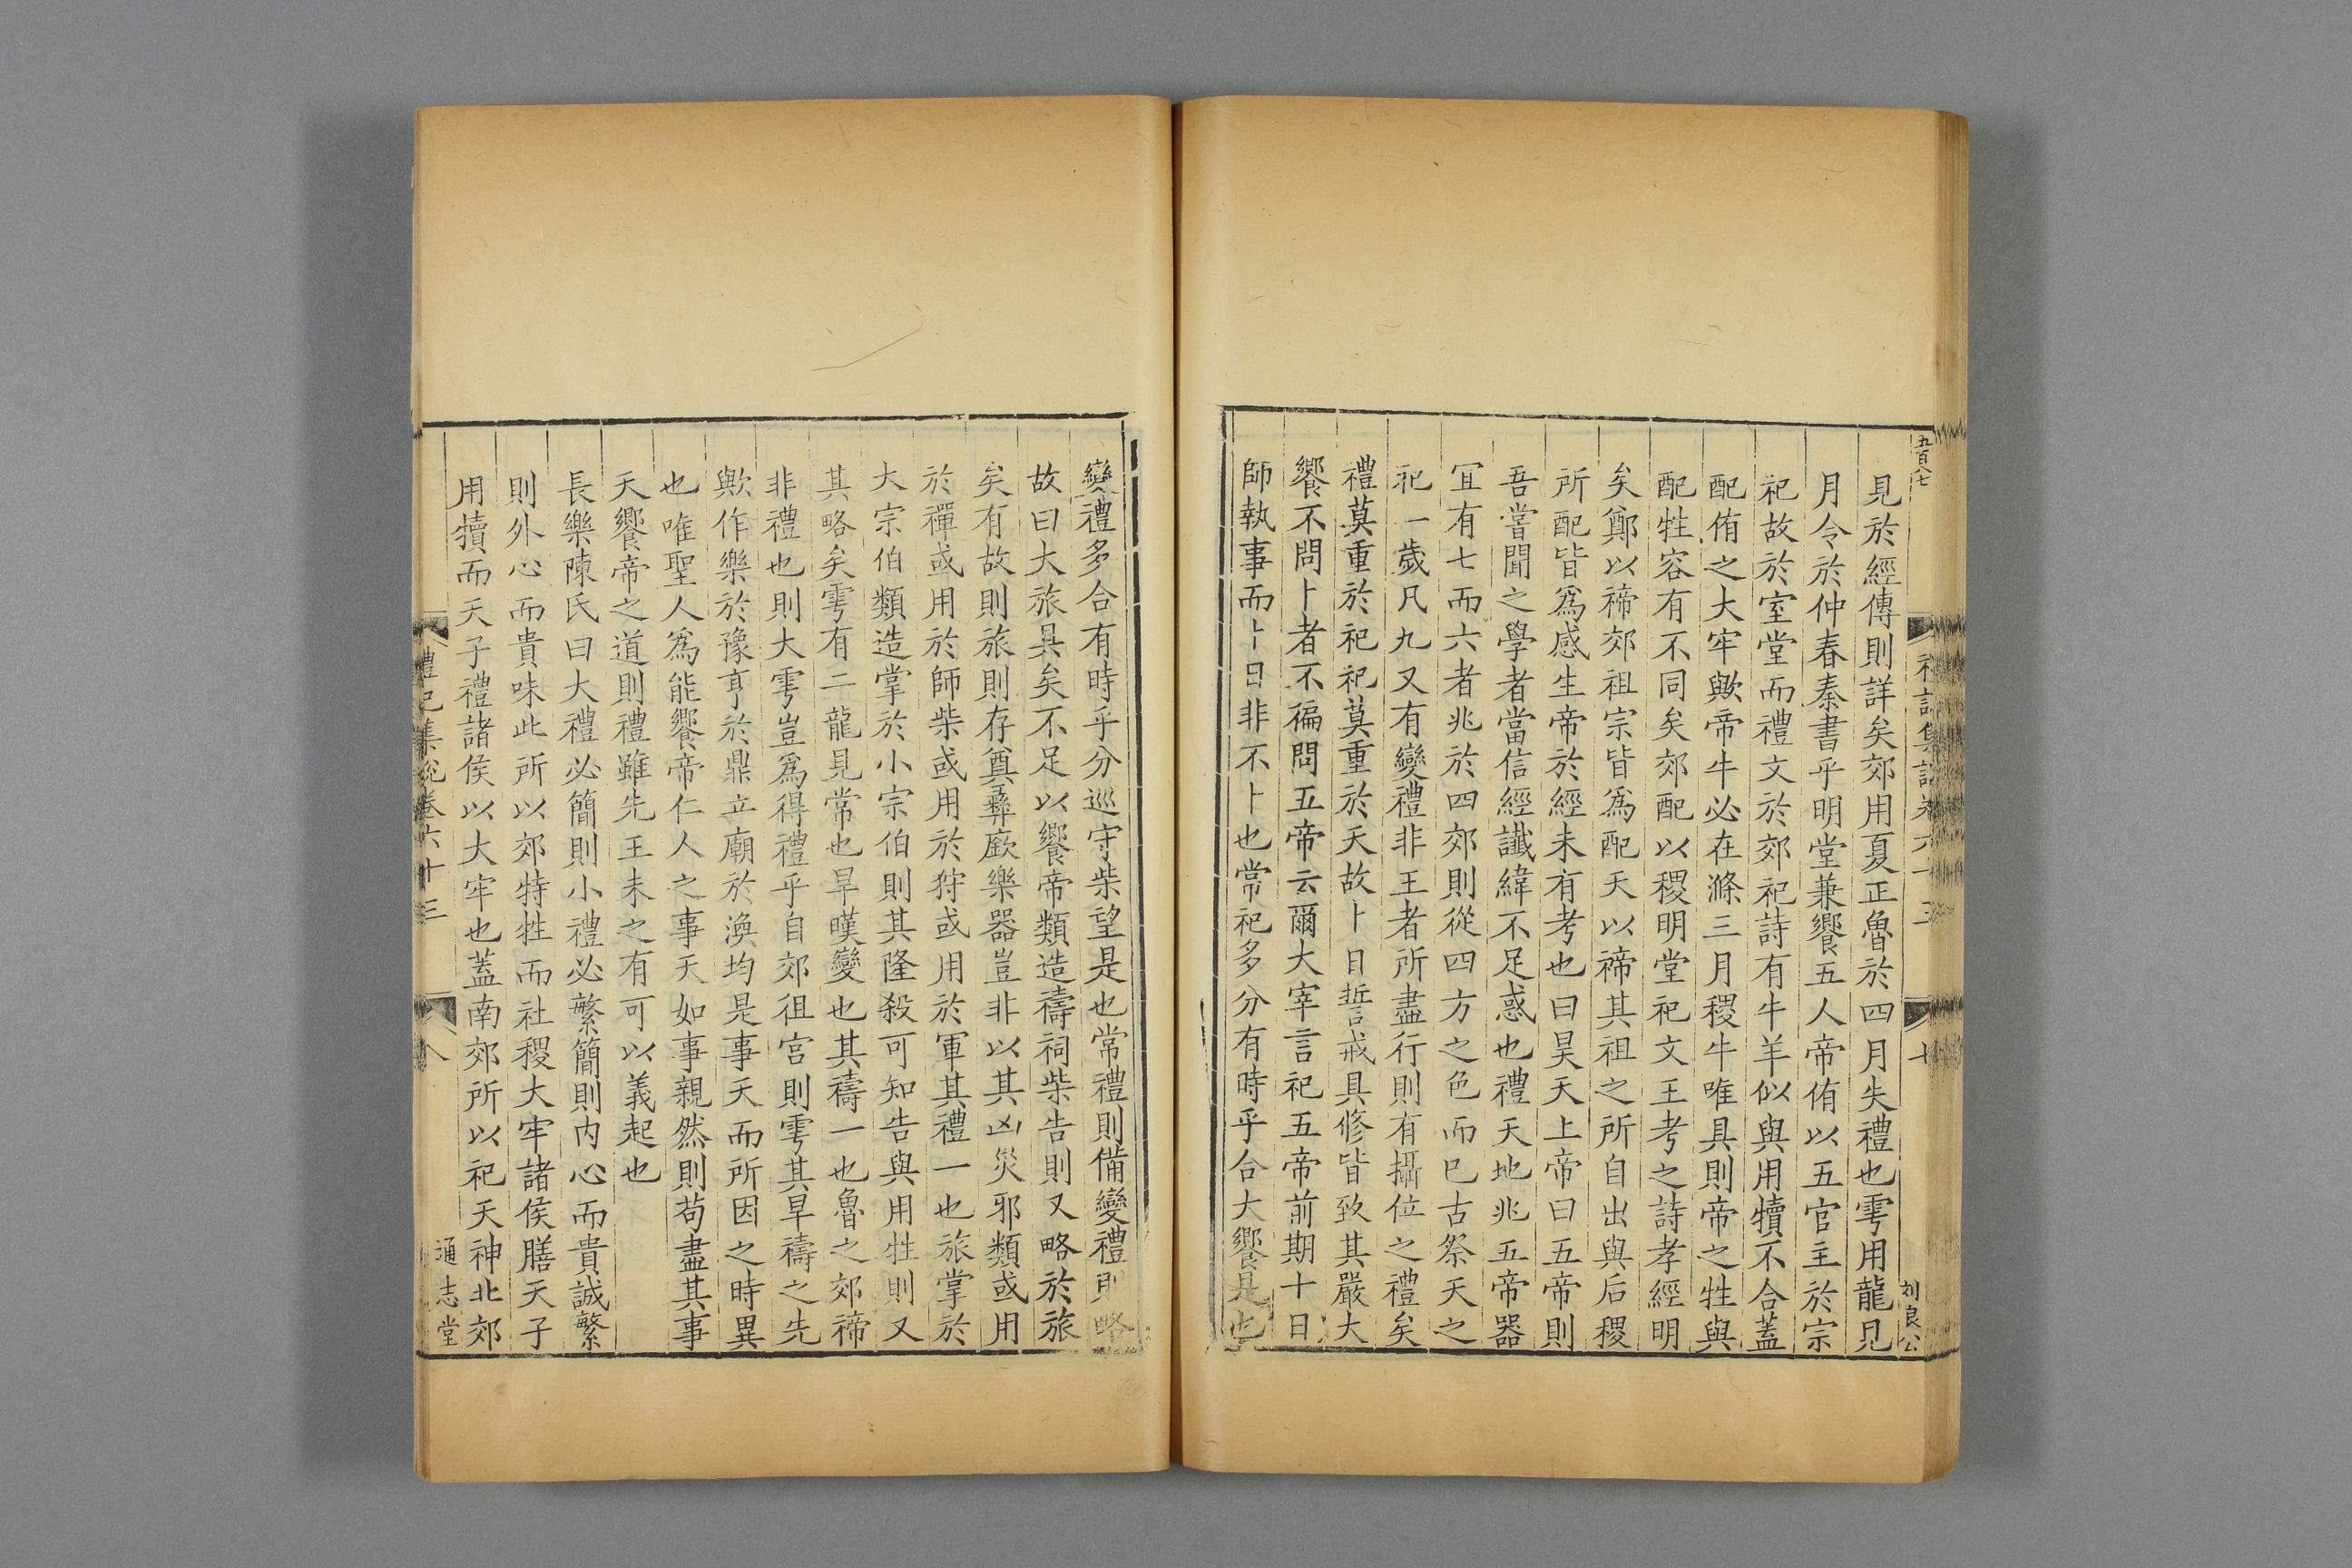 五百八七
禮記集說卷六十三
七
刘良公
見於經傳則詳矣郊用夏正魯於四月失禮也雩用龍見
月令於仲春秦書乎明堂兼饗五人帝侑以五官主於宗
祀故於室堂而禮文於郊祀詩有牛羊似與用犢不合蓋
配侑之大牢歟帝牛必在滌三月稷牛唯具則帝之牲與
配牲容有不同矣郊配以稷明堂祀文王考之詩孝經明
矣鄭以禘郊祖宗皆爲配天以禘其祖之所自出與后稷
所配皆爲感生帝於經未有考也曰昊天上帝曰五帝則
吾嘗聞之學者當信經讖緯不足惑也禮天地兆五帝器
冝有七而六者兆於四郊則從四方之色而巳古祭天之
祀一歲凡九又有變禮非王者所盡行則有攝位之禮矣
禮莫重於祀祀莫重於天故卜日誓戒具修皆致其嚴大
饗不問卜者不徧問五帝云爾大宰言祀五帝前期十日
師執事而卜日非不卜也常祀多分有時乎合大饗是也
變禮多合有時乎分巡守柴望是也常禮則備變禮則略
故曰大旅具矣不足以饗帝類造禱祠柴告則又略於旅
矣有故則旅則存奠彝廞樂器豈非以其凶災邪類或用
於禪或用於師柴或用於狩或用於軍其禮一也旅掌於
大宗伯類造掌於小宗伯則其隆殺可知告與用牲則又
其略矣雩有二龍見常也旱暵變也其禱一也魯之郊禘
非禮也則大雩豈爲得禮乎自郊徂宮則雩其旱禱之先
歟作樂於豫亨於鼎立廟於渙均是事天而所因之時異
也唯聖人爲能饗帝仁人之事天如事親然則苟盡其事
天饗帝之道則禮雖先王未之有可以義起也
長樂陳氏曰大禮必簡則小禮必繁簡則内心而貴誠繁
則外心而貴味此所以郊特牲而社稷大牢諸侯膳天子
用犢而天子禮諸侯以大牢也蓋南郊所以祀天神北郊
禮記集說卷六十三
八
通志堂